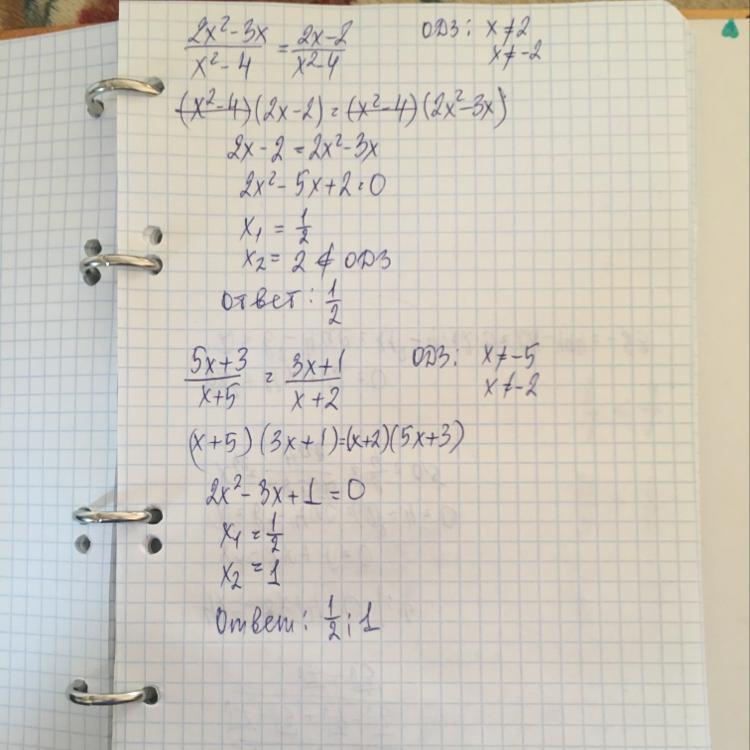 (2x²-3x)/(x²-4) = (2x-2)/(x²-4) ОДЗ: x≠2
x≠-2
(x²-4)(2x-2) = (x²-4)(2x²-3x)
2x-2=2x²-3x
2x²-5x+2=0
x₁ = 1/2
x₂= 2 ∉ ОДЗ
ответ: 1/2
(5x+3)/(x+5) = (3x+1)/(x+2) ОДЗ: x≠-5
x≠-2
(x+5)(3x+1)=(x+2)(5x+3)
2x²-3x+1=0
x₁=1/2
x₂=1
Ответ: 1/2; 1